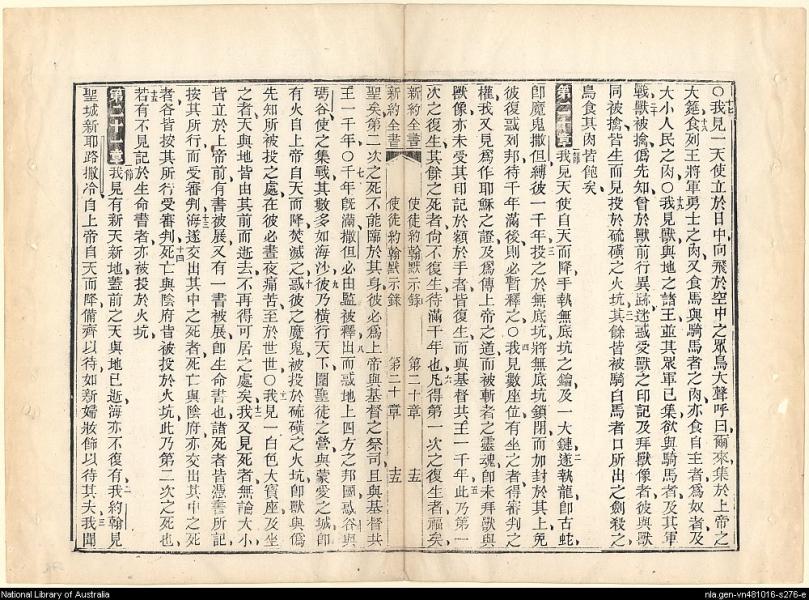 ○我見一天使立於日中向飛於空中之眾鳥大聲呼曰爾來集於上帝之
大筵食列王將軍勇士之肉又食馬與騎馬者之肉亦食自主者爲奴者及
大小人民之肉○我見獸與地之諸王並其眾軍已集欲與騎馬者及其軍
戰獸被擒僞先知曾於獸前行異跡迷惑受獸之印記及拜獸像者彼與獸
同被擒皆生而見投於硫磺之火坑其餘皆被騎白馬者口所出之劍殺之
鳥食其肉皆飽矣
第二十章我見天使自天而降手執無底坑之鑰及一大鏈遂執龍卽古蛇
卽魔鬼撒但縛彼一千年投之於無底坑將無底坑鎖閉而加封於其上免
彼復惑列邦待千年滿後則必暫釋之○我見數座位有坐之者得審判之
權我又見爲作耶穌之證及爲傳上帝之道而被斬者之靈魂卽未拜獸與
獸像亦未受其印記於額於手者皆復生而與基督共王一千年此乃第一
次之復生其餘之死者尙不復生待滿千年也凡得第一次之復生者福矣
新約全書 使徒約翰默示錄 第二十章 十五
新約全書 使徒約翰默示錄 第二十章 十五
聖矣第二次之死不能臨於其身彼必爲上帝與基督之祭司且與基督共
王一千年○千年旣滿撒但必由監被釋出而惑地上四方之邦國歌谷與
瑪谷使之集戰其數多如海沙彼乃橫行天下圍聖徒之營與蒙愛之城卽
有火自上帝自天而降焚滅之惑彼之魔鬼被投於硫磺之火坑卽獸與僞
先知所被投之處在彼必晝夜痛苦至於世世○我見一白色大寶座及坐
之者天與地皆由其前而逝去不再得可居之處矣我又見死者無論大小
皆立於上帝前有書被展又有一書被展卽生命書也諸死者皆憑書所記
按其所行而受審判海遂交出其中之死者死亡與陰府亦交出其中之死
者各皆按其所行受審判死亡與陰府皆被投於火坑此乃第二次之死也
若有不見記於生命書者亦被投於火坑
第二十一章我見有新天新地蓋前之天與地已逝海亦不復有我約翰見
聖城新耶路撒冷自上帝自天而降備齊以待如新婦妝飾以待其夫我聞
National Library of Australia
nla.gen-vn481016-s276-e